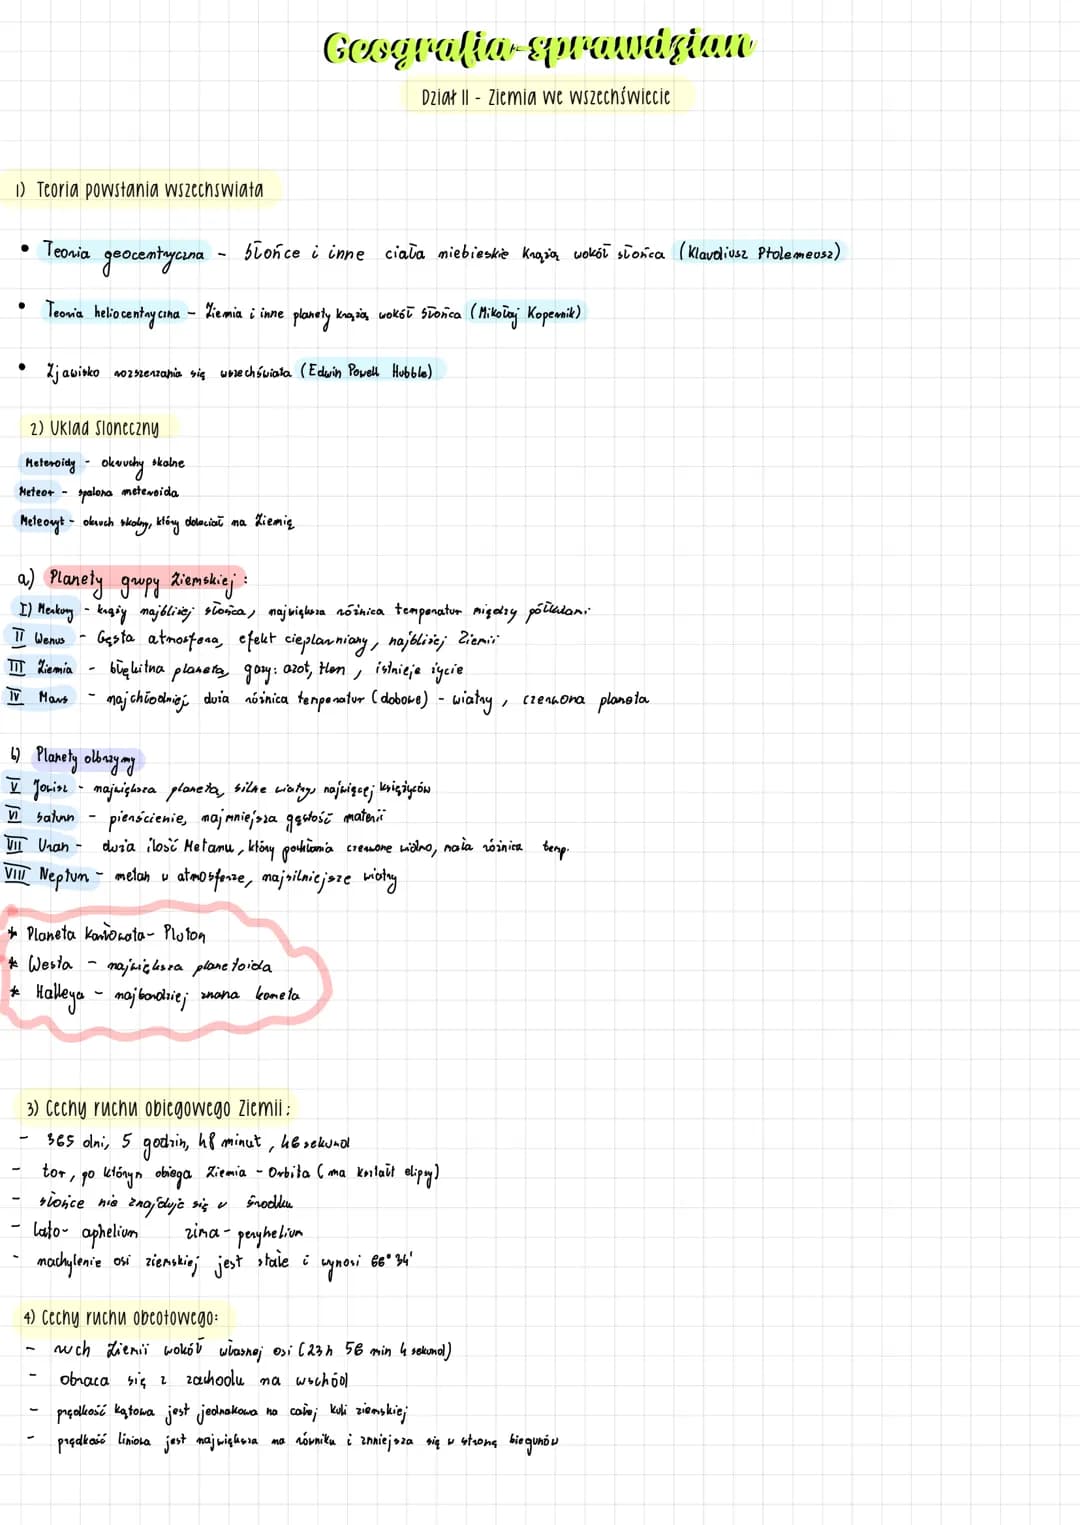 Geografia-sprawdzian
Dział II - Ziemia we wszechświecie
1) Teoria powstania wszechswiata
• Teoria geocentryczna - Słońce i inne ciała niebieskie krążą wokół słońca (Klaudiusz Ptolemeusz)
• Teoria heliocentryczna - Ziemia i inne planety krążą wokół Słońca (Mikołaj Kopernik)
• Zjawisko rozszerzania się wszechświata (Edwin Powell Hubble)
2) Układ Słoneczny
Meteroidy - okruchy skalne
Meteor - spalona meteroida
Meteoryt - okruch skalny, który doleciał na Ziemię
a) Planety grupy Ziemskiej:
I) Merkury - krąży najbliżej słońca, największa różnica temperatur między półkulami
II Wenus - Gęsta atmosfera, efekt cieplarniany, najbliżej Ziemii
III Ziemia - błękitna planeta, gazy: azot, tlen, istnieje życie
IV Mars - najchłodniej, duża różnica temperatur (dobowe) - wiatry, czerwona planeta
b) Planety olbrzymy
V Jowisz - największa planeta, silne wiatry, najwięcej księżyców
VI Saturn - pierścienie, najmniejsza gęstość materii
VII Uran - duża ilość Metanu, który pochłania czerwone widmo, mała różnica temp.
VIII Neptun - metan w atmosferze, najsilniejsze wiatry
* Planeta Karłowata - Pluton
* Westa - największa planetoida
* Halleya - najbardziej znana kometa
3) Cechy ruchu obiegowego Ziemii:
- 365 dni, 5 godzin, 48 minut, 46 sekund
- tor, po którym obiega Ziemia - Orbita (ma kształt elipsy)
- słońce nie znajduje się w środku
- lato- aphelium zima - peryhelium
- nachylenie osi ziemskiej jest stałe i wynosi 66°34'
4) Cechy ruchu obrotowego:
- ruch Ziemii wokół własnej osi (23h 56 min 4 sekund)
- obraca się z zachodu na wschód
- prędkość kątowa jest jednakowa na całej kuli ziemskiej
- prędkość liniowa jest największa na równiku i zmniejsza się w stronę biegunów